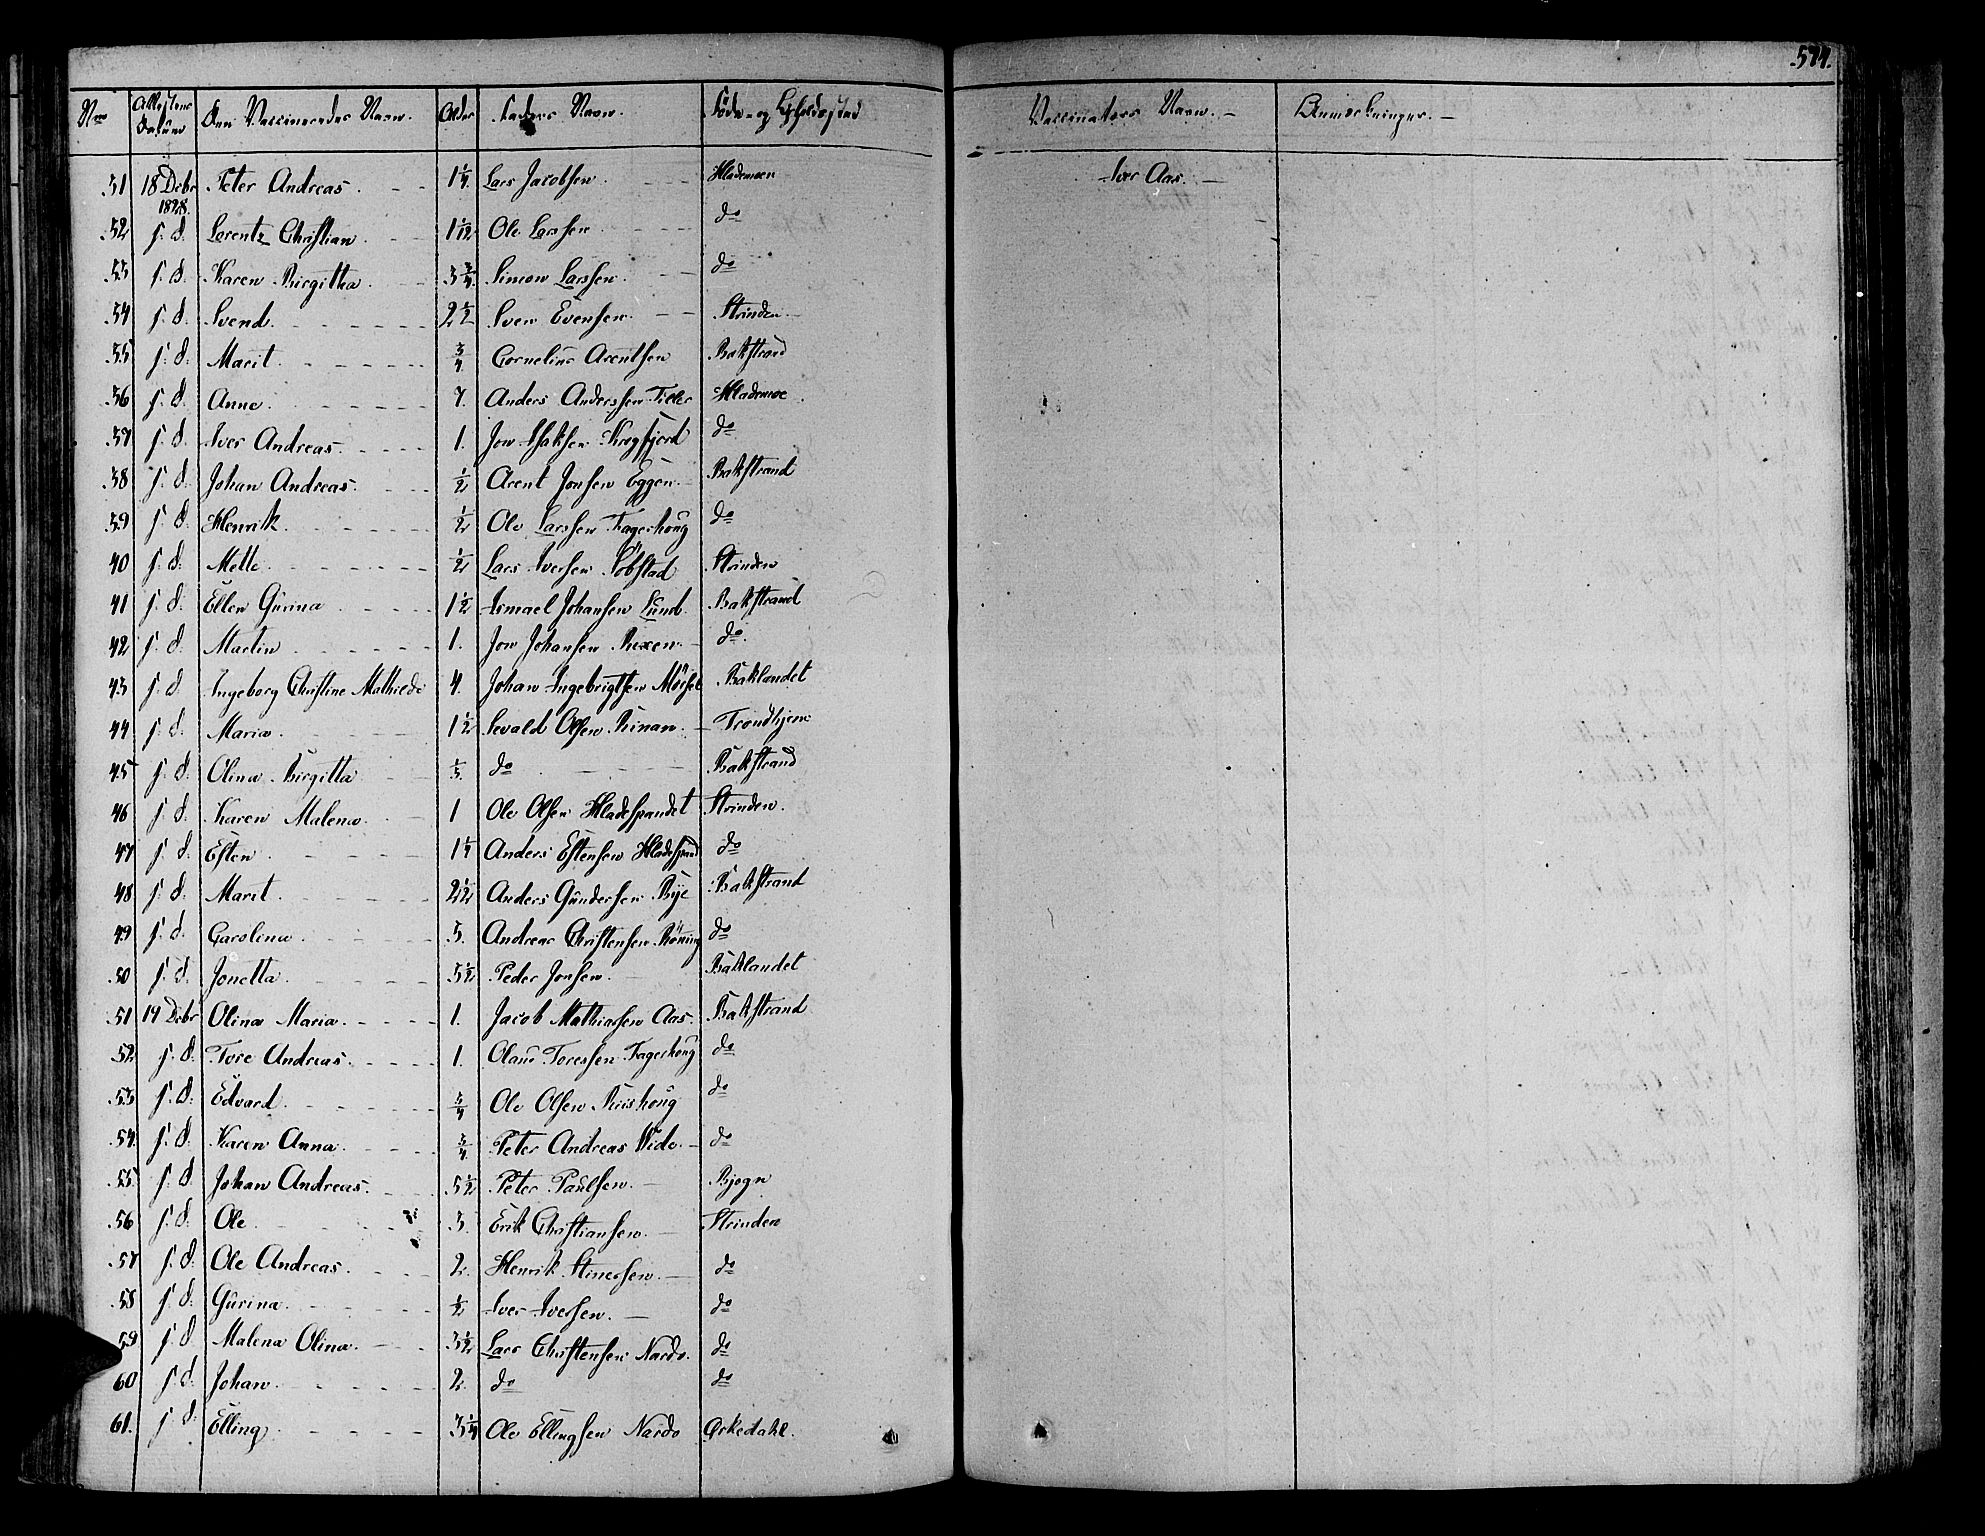 574.
No Attestens Datum Den Vaccineredes Navn. Alder Faders Navn. Føde- og Opholdssted Vaccinators Navn. Anmærkninger.
31 18 Decbr 1828. Peter Andreas. 1 1/4 Lars Jacobsen. Hlademoen Iver Aas.
32 s. d. Lorentz Christian. 1 1/12 Ole Larssen do
33 s. d. Karen Birgitha. 3 3/4 Simon Larssen. do
34 s. d. Svend. 2 1/2 Sven Evensen. Strinden.
35 s. d. Marit. 3/4 Cornelius Arentsen Bakstrand
36 s. d. Anne. 7. Anders Anderssen Tiller Hlademoe
37 s. d. Iver Andreas. 1. Jon Isaksen Krogfjord do
38 s. d. Johan Andreas. 1/2 Arent Jonsen Eggen. Bakstrand
39 s. d. Henrik. 1/2 Ole Larssen Fagerhoug do
40 s. d. Mette. 1/2 Lars Iversen Søbstad Strinden
41 s. d. Ellen Gurina 1 1/2 Ismael Johansen Lund. Bakstrand
42 s. d. Martin 1. Jon Johansen Rixen. do.
43 s. d. Ingeborg Christine Mathilde 4. Johan Ingebrigtsen Baklandet
44 s. d. Maria. 1 1/2 Sevald Olsen Rinan. Trondhjem
45 s. d. Olina Birgitta 1/3. do Bakstrand
46 s. d. Karen Malena. 1 Ole Olsen Hladespandet Strinden.
47 s. d. Esten. 1 1/4 Anders Estensen Hladespand do
48 s. d. Marit. 2 1/2 Anders Gundersen Bye Bakstrand
49 s. d. Carolina. 5. Andreas Christensen Rønning do
50 s. d. Jonetta. 5 1/2 Peder Jonsen. Baklandet
51 19 Decbr Olina Maria. 1. Jacob Mathiassen Aas. Bakstrand
52. s. d. Tore Andreas. 1. Olaus Toressen Fagerhoug do
53 s. d. Edvard. 3/4 Ole Olsen Riishoug do
54. s. d. Karen Anna. 3/4 Peter Andreas Wide. do
55. s. d. Johan Andreas. 5 1/2 Peter Paulsen. Bjogn
56 s. d. Ole. 3. Erik Christiansen. Strinden
57 s. d. Ole Andreas. 2. Henrik Stinersen. do
58 s. d. Gurina. 1/2 Iver Iversen. do
59 s. d. Malena Olina. 3 1/2 Lars Christensen Nardo. do
60 s. d. Johan. 2. do do
61. s. d. Elling. 3 1/4 Ole Ellingsen Nardo Orkedahl.